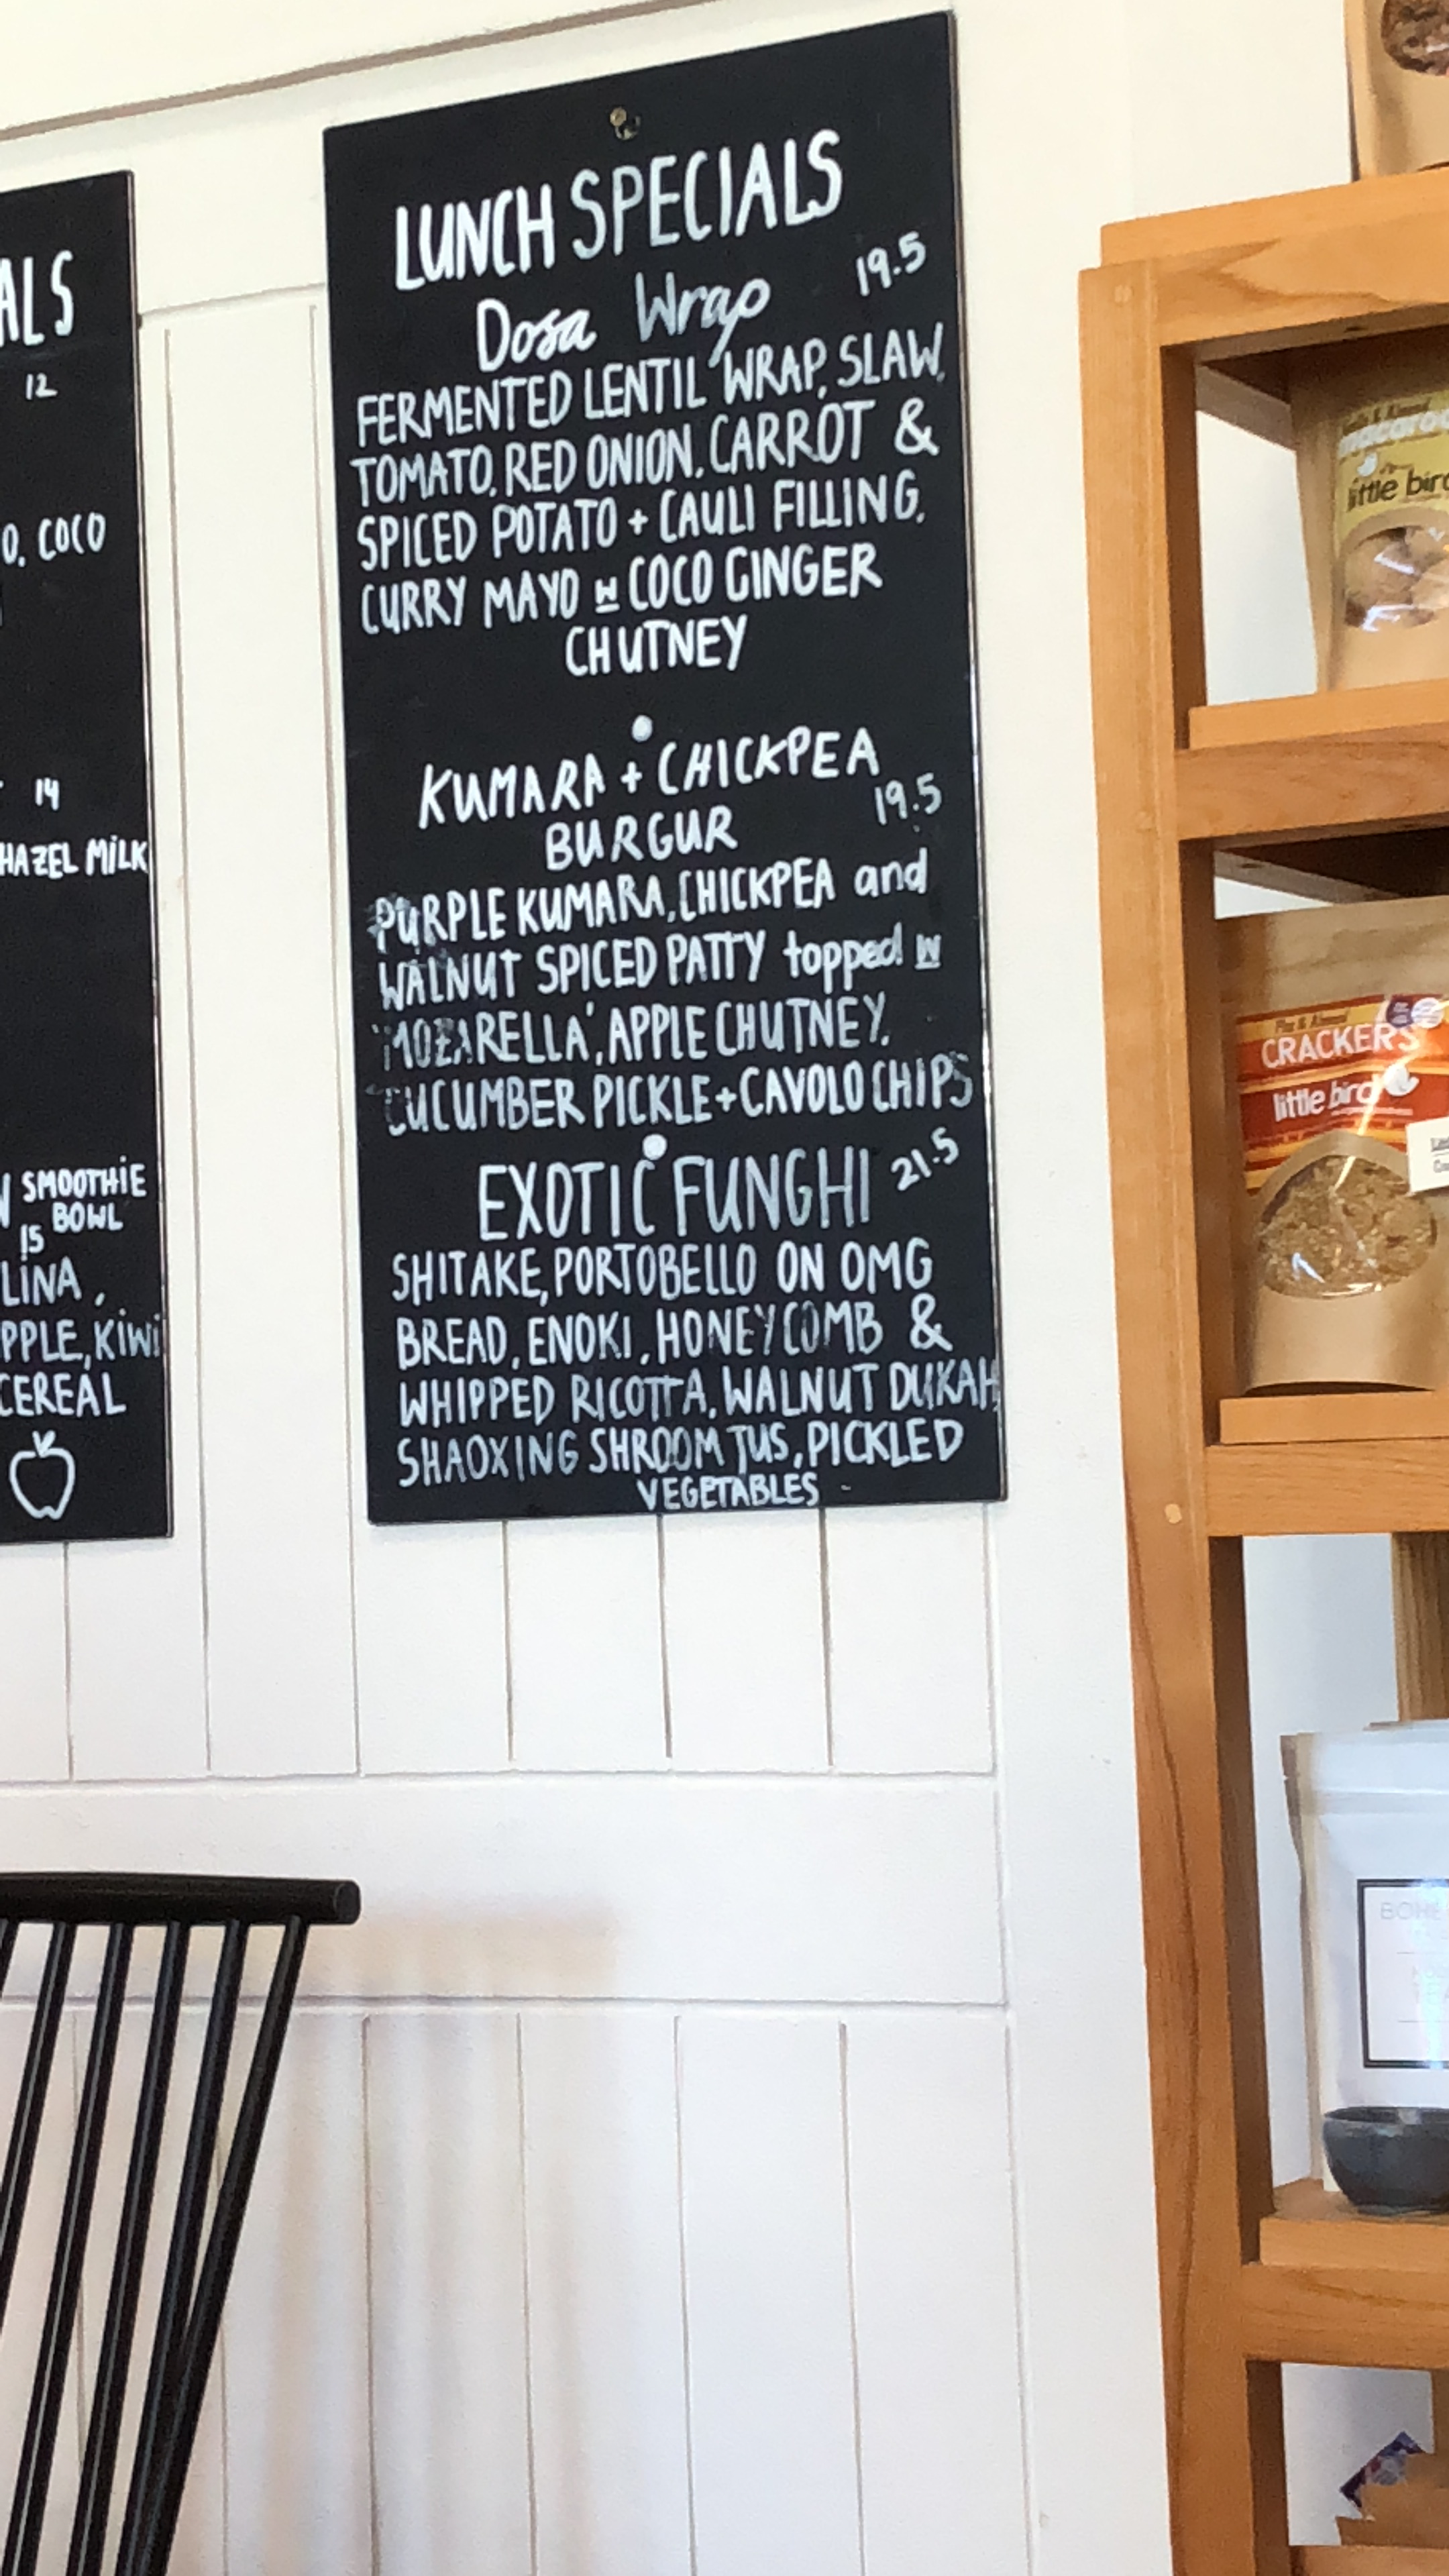 ALS
12
O. COCO
14
HAZEL MILK
SMOOTHIE
BOWL
IS
LINA,
PPLE, KIWI
CEREAL
LUNCH SPECIALS
Dosa Wrap 19.5
FERMENTED LENTIL WRAP, SLAW,
TOMATO, RED ONION, CARROT &
SPICED POTATO + CAULI FILLING,
CURRY MAYO W COCO GINGER
CHUTNEY
KUMARA + CHICKPEA
BURGUR 19.5
PURPLE KUMARA, CHICKPEA and
WALNUT SPICED PATTY topped W
'MOZARELLA', APPLE CHUTNEY,
CUCUMBER PICKLE + CAVOLO CHIPS
EXOTIC FUNGHI 21.5
SHITAKE, PORTOBELLO ON OMG
BREAD, ENOKI, HONEYCOMB &
WHIPPED RICOTTA, WALNUT DUKAH,
SHAOXING SHROOM JUS, PICKLED
VEGETABLES -
macaroo
little bird
CRACKERS
little bird
BOHE